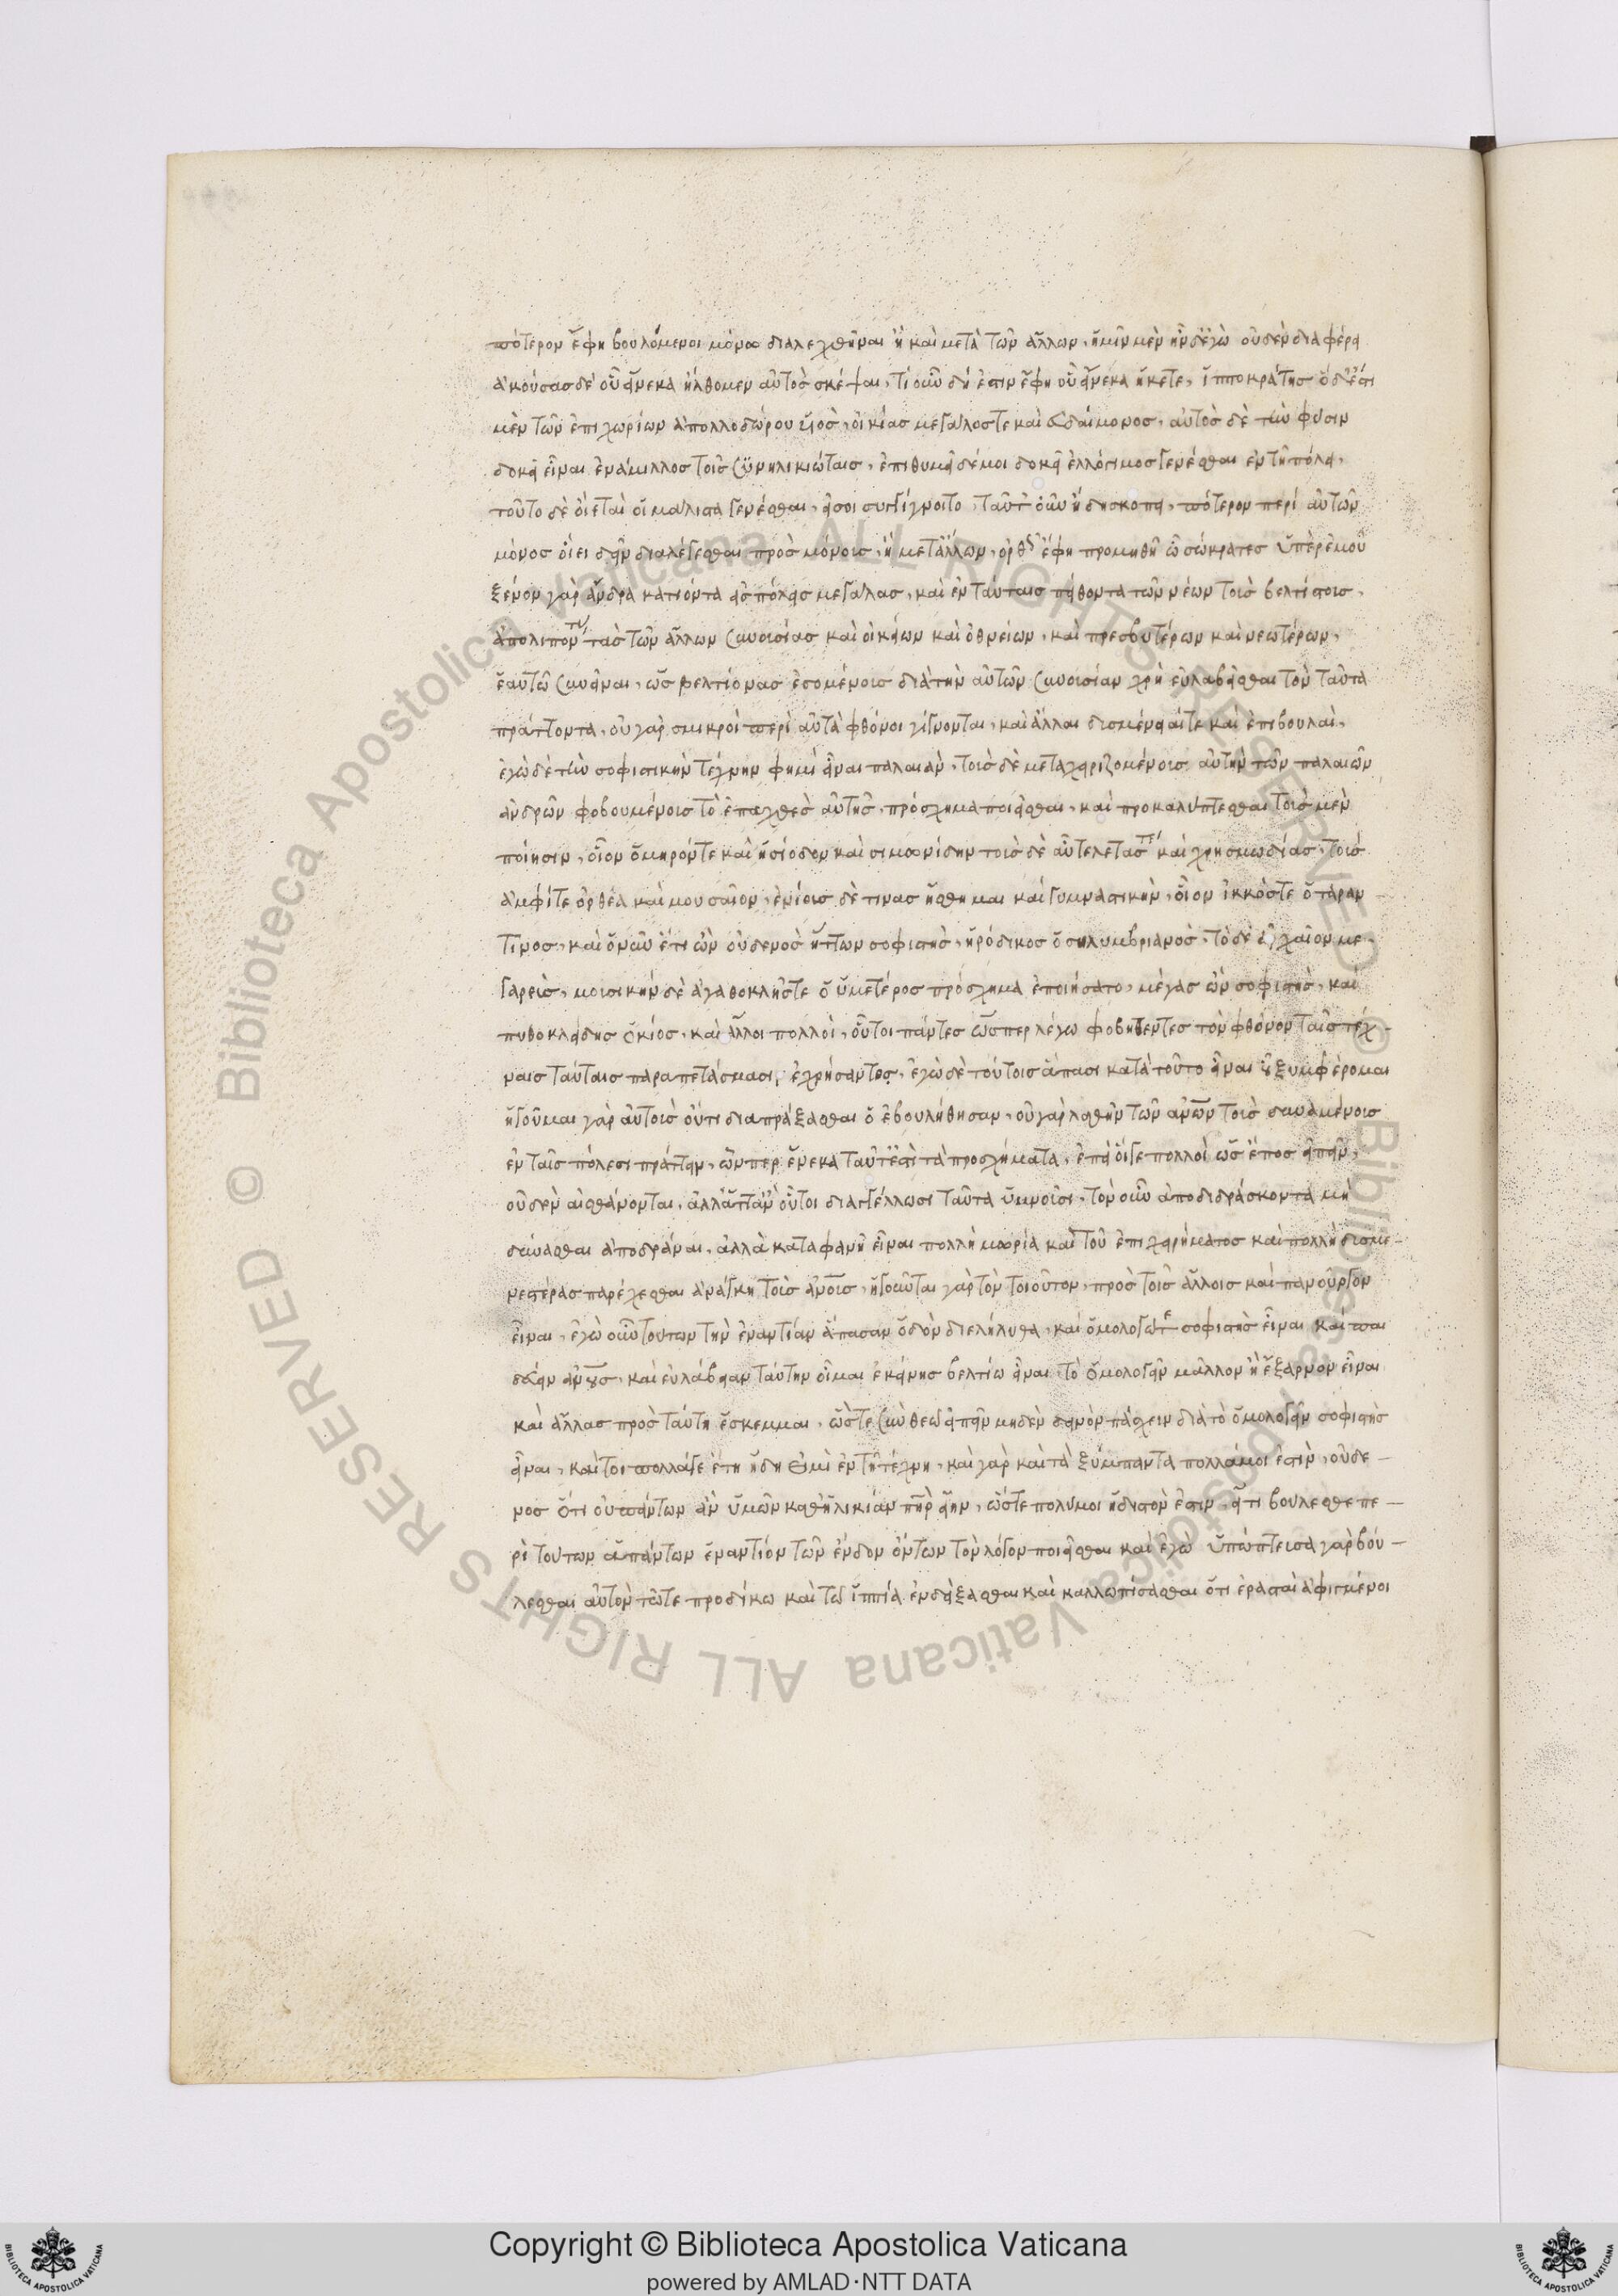 πότερον ἔφη βουλόμενοι μόνῳ διαλεχθῆναι ἢ καὶ μετὰ τῶν ἄλλων, ἡμῖν μὲν ἦν δ' ἐγὼ οὐδὲν διαφέρει
ἀκούσας δὲ οὗ ἕνεκα ἤλθομεν αὐτὸς σκέψαι, τί οὖν δή ἐστιν ἔφη οὗ ἕνεκα ἥκετε, ἱπποκράτης ὅδ' ἐστὶ
μὲν τῶν ἐπιχωρίων ἀπολλοδώρου υἱὸς, οἰκίας μεγάλης τε καὶ εὐδαίμονος, αὐτὸς δὲ τὴν φύσιν
δοκεῖ εἶναι ἐνάμιλλος τοῖς συνηλικιώταις, ἐπιθυμεῖ δέ μοι δοκεῖ ἐλλόγιμος γενέσθαι ἐν τῇ πόλει,
τοῦτο δὲ οἴεταί οἱ μάλιστα γενέσθαι, εἴ σοι συγγίγνοιτο, ταῦτ' οὖν ἤδη σκόπει, πότερον περὶ αὐτῶν
μόνος οἴει δεῖν διαλέγεσθαι πρὸς μόνους, ἢ μετ' ἄλλων, ὀρθῶς ἔφη προμηθῇ ὦ σώκρατες ὑπὲρ ἐμοῦ
ξένον γὰρ ἄνδρα κατιόντα εἰς πόλεις μεγάλας, καὶ ἐν ταύταις πείθοντα τῶν νέων τοὺς βελτίστους,
ἀπολιπόντας τὰς τῶν ἄλλων συνουσίας καὶ οἰκείων καὶ ὀθνείων, καὶ πρεσβυτέρων καὶ νεωτέρων,
ἑαυτῷ συνεῖναι, ὡς βελτίονας ἐσομένους διὰ τὴν αὐτῶν συνουσίαν χρὴ εὐλαβεῖσθαι τὸν ταῦτα
πράττοντα, οὐ γὰρ σμικροὶ περὶ αὐτὰ φθόνοι γίγνονται, καὶ ἄλλαι δυσμένειαί τε καὶ ἐπιβουλαί,
ἐγὼ δὲ τὴν σοφιστικὴν τέχνην φημὶ εἶναι παλαιὰν, τοὺς δὲ μεταχειριζομένους αὐτὴν τῶν παλαιῶν
ἀνδρῶν φοβουμένους τὸ ἐπαχθὲς αὐτῆς, πρόσχημα ποιεῖσθαι, καὶ προκαλύπτεσθαι τοὺς μὲν
ποίησιν, οἷον ὅμηρόν τε καὶ ἡσίοδον καὶ σιμωνίδην τοὺς δὲ αὖ τελετάς τε καὶ χρησμῳδίας, τοὺς
ἀμφί τε ὀρφέα καὶ μουσαῖον, ἐνίους δὲ τινας ᾔσθημαι καὶ γυμναστικὴν, οἷον ἴκκος τε ὁ ταραν
τῖνος, καὶ ὁ νῦν ἔτι ὢν οὐδενὸς ἥττων σοφιστὴς, ἡρόδικος ὁ σηλυμβριανὸς, τὸ δὲ ἀρχαῖον με
γαρεὺς, μουσικὴν δὲ ἀγαθοκλῆς τε ὁ ὑμέτερος πρόσχημα ἐποιήσατο, μέγας ὢν σοφιστὴς, καὶ
πυθοκλείδης ὁ κεῖος, καὶ ἄλλοι πολλοὶ, οὗτοι πάντες ὥσπερ λέγω φοβηθέντες τὸν φθόνον ταῖς τέχ
ναις ταύταις παραπετάσμασι, ἐχρήσαντο, ἐγὼ δὲ τούτοις ἅπασι κατὰ τοῦτο εἶναι οὐ ξυμφέρομαι
ἡγοῦμαι γὰρ αὐτοὺς οὔτι διαπράξασθαι ὃ ἐβουλήθησαν, οὐ γὰρ λαθεῖν τῶν ἀνων τοὺς δυναμένους
ἐν ταῖς πόλεσι πράττειν, ὧνπερ ἕνεκα ταῦτ' ἐστὶ τὰ προσχήματα, ἐπεὶ οἵ γε πολλοὶ ὡς ἔπος εἰπεῖν,
οὐδὲν αἰσθάνονται, ἀλλ' ἅττ' ἂν οὗτοι διαγγέλλωσι ταῦτα ὑμνοῦσι, τὸν οὖν ἀποδιδράσκοντα μὴ
δύνασθαι ἀποδρᾶναι, ἀλλὰ καταφανῆ εἶναι πολλὴ μωρία καὶ τοῦ ἐπιχειρήματος καὶ πολλὴ δυσμε
νεστέρας παρέχεσθαι ἀνάγκη τοὺς ἀνους, ἡγοῦνται γὰρ τὸν τοιοῦτον, πρὸς τοῖς ἄλλοις καὶ πανοῦργον
εἶναι, ἐγὼ οὖν τούτων τὴν ἐναντίαν ἅπασαν ὁδὸν ἐλήλυθα, καὶ ὁμολογῶ τε σοφιστὴς εἶναι καὶ παι
δεύειν ἀνους, καὶ εὐλάβειαν ταύτην οἶμαι ἐκείνης βελτίω εἶναι, τὸ ὁμολογεῖν μᾶλλον ἢ ἔξαρνον εἶναι
καὶ ἄλλας πρὸς ταύτῃ ἔσκεμμαι, ὥστε σὺν θεῷ εἰπεῖν μηδὲν δεινὸν πάσχειν διὰ τὸ ὁμολογεῖν σοφιστὴς
εἶναι, καίτοι πολλά γε ἔτη ἤδη εἰμὶ ἐν τῇ τέχνῃ, καὶ γὰρ καὶ τὰ ξύμπαντα πολλά μοι ἐστὶν, οὐδε
νὸς ὅτι οὐ πάντων ἂν ὑμῶν καθ' ἡλικίαν πὴρ εἴην, ὥστε πολύ μοι ἥδιστόν ἐστιν, εἴ τι βούλεσθε πε
ρὶ τούτων ἁπάντων ἐναντίον τῶν ἔνδον ὄντων τὸν λόγον ποιεῖσθαι καὶ ἐγὼ ὑπώπτευσα γὰρ βού
λεσθαι αὐτὸν τῷ τε προδίκῳ καὶ τῷ ἱππίᾳ ἐνδείξασθαι καὶ καλλωπίσασθαι ὅτι ἐρασταὶ ἀφιγμένοι